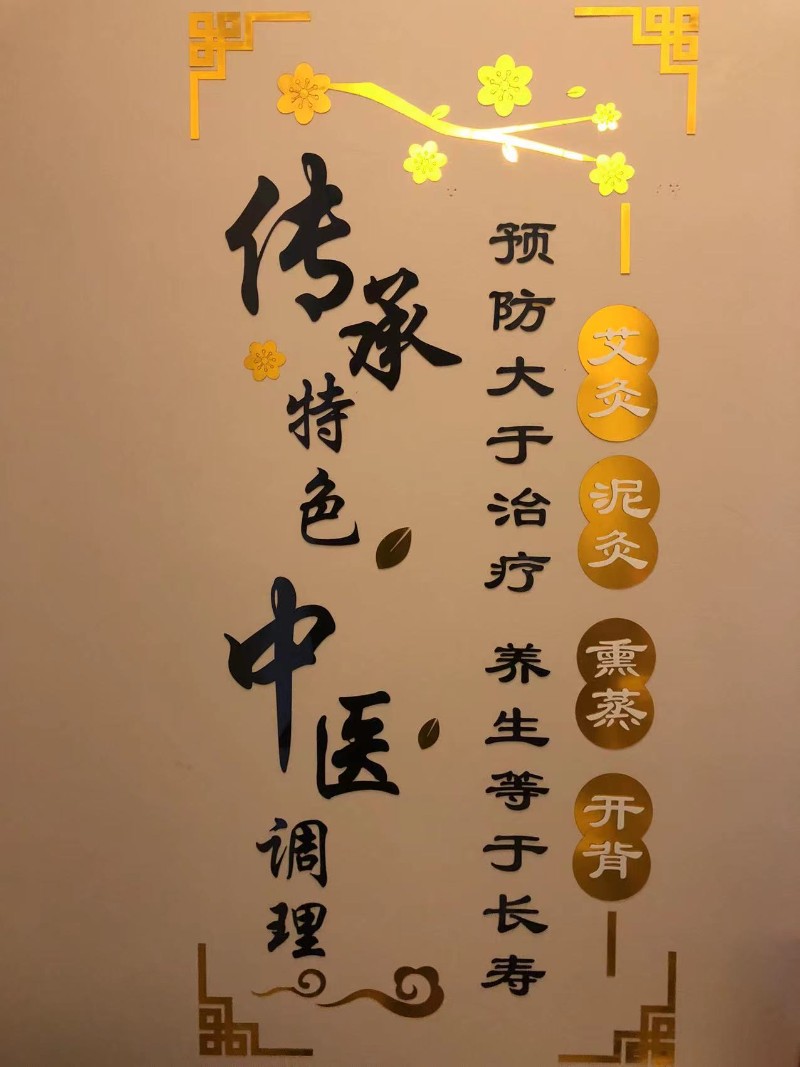 艾灸
泥灸
熏蒸
开背
预防大于治疗 养生等于长寿
传承特色中医调理